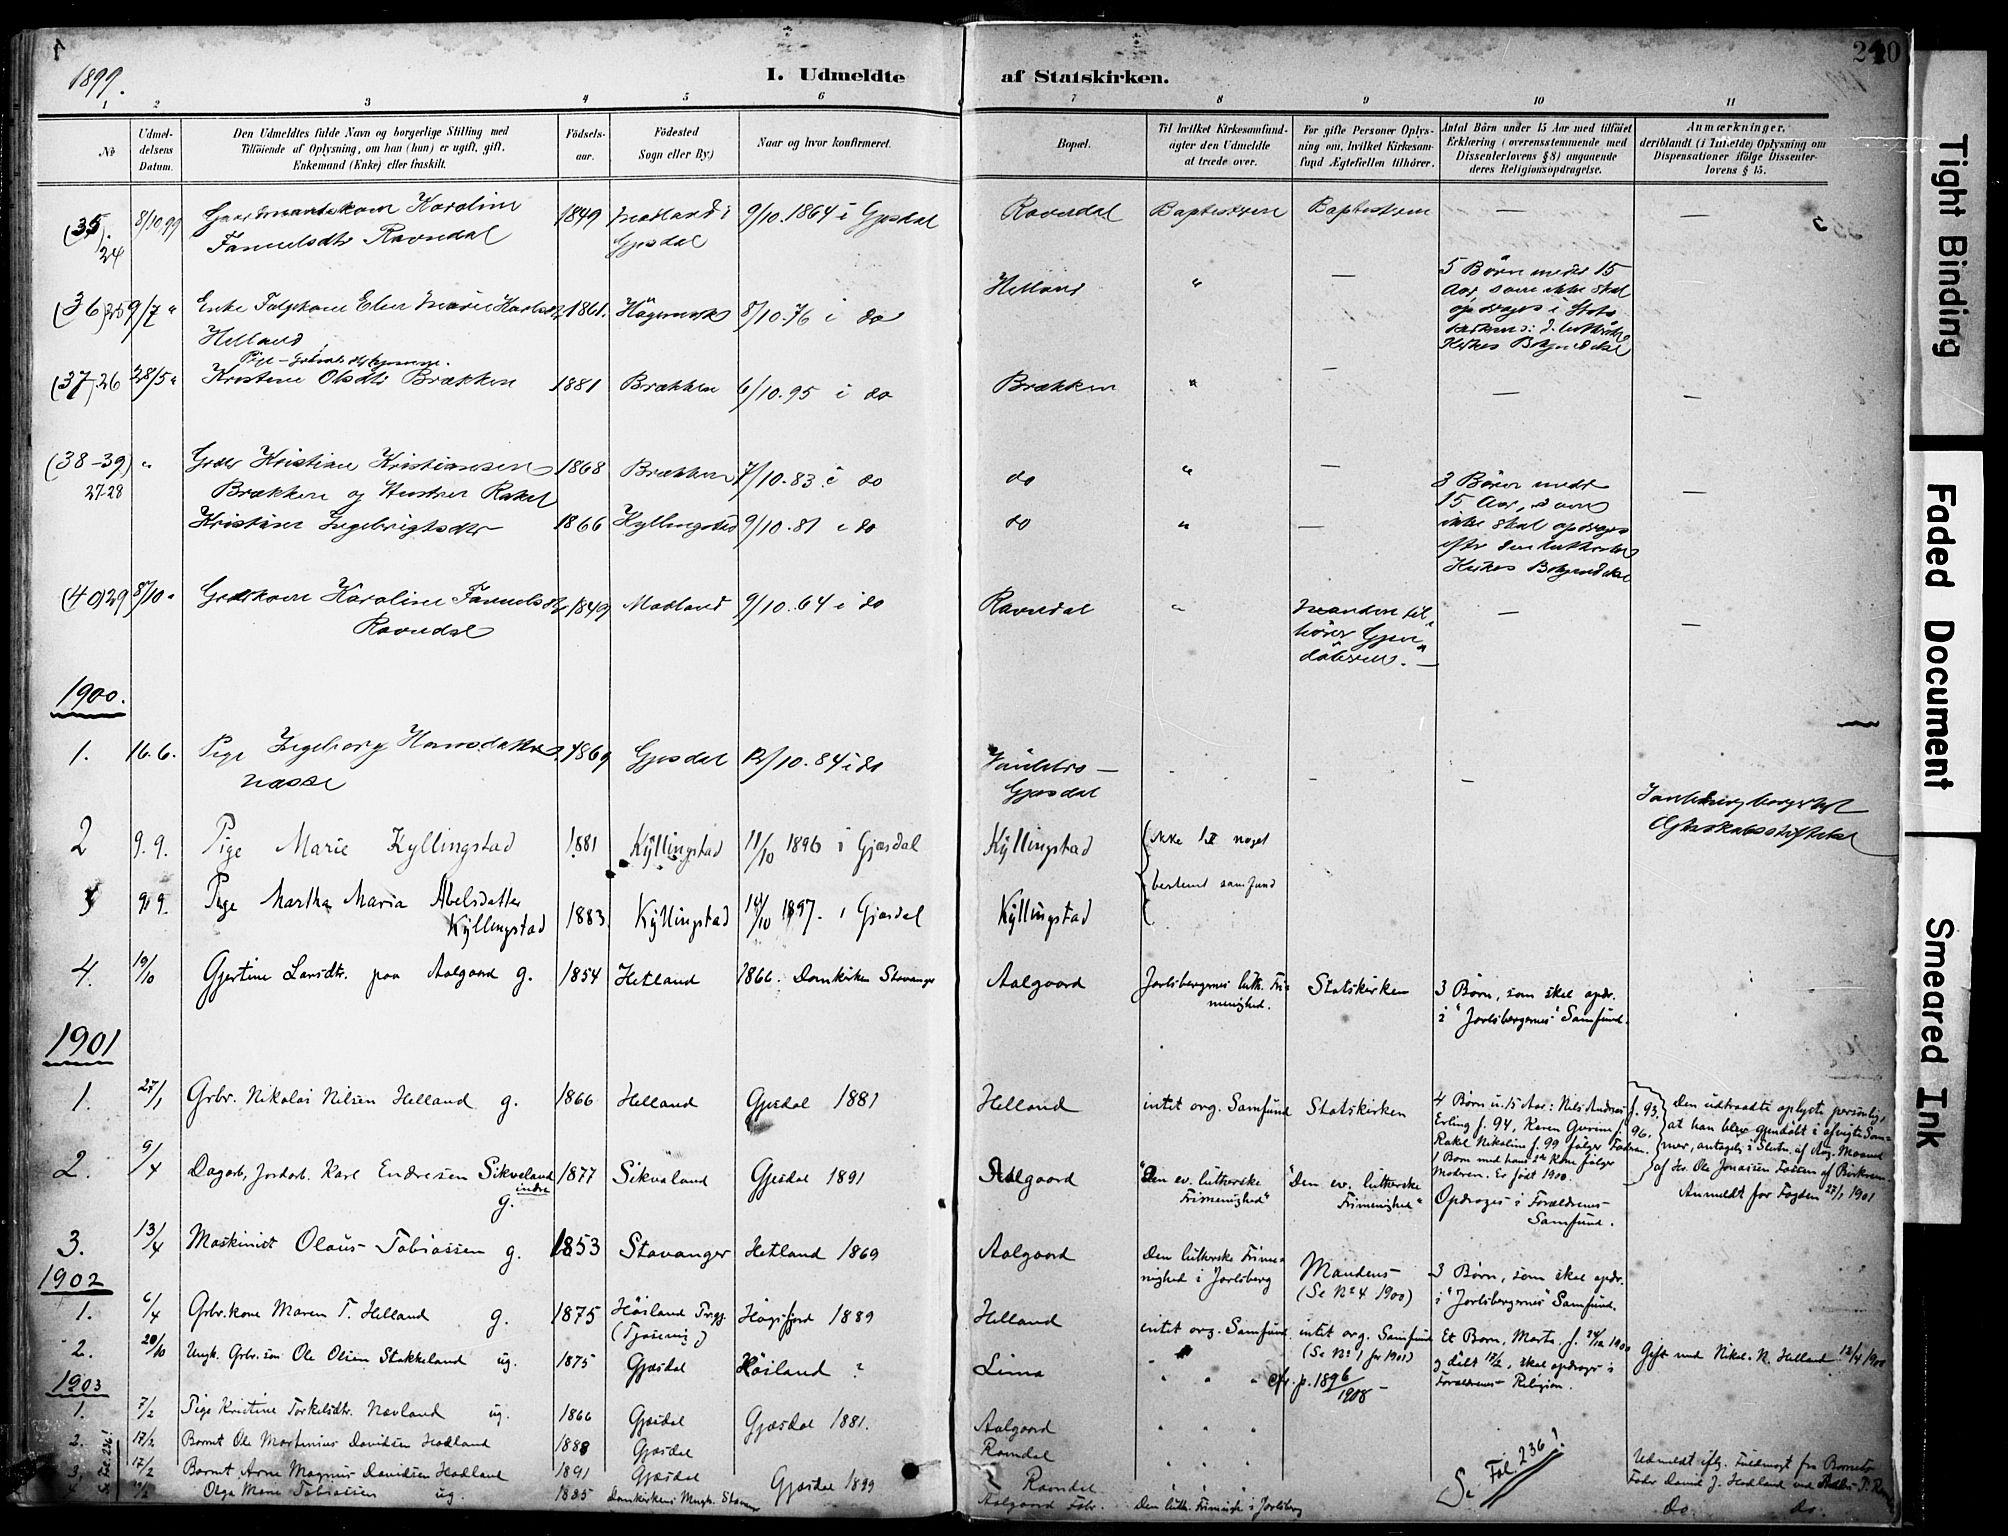 1899.
I. Udmeldte af Statskirken.
240
1 2 3 4 5 6 7 8 9 10 11
No
Udmel-
delsens
Datum.
Den Udmeldtes fulde Navn og borgerlige Stilling med
Tilføiende af Oplysning, om han (hun) er ugift, gift,
Enkemand (Enke) eller fraskilt.
Fødsels-
aar.
Fødested
Sogn eller By.)
Naar og hvor konfirmeret.
Bopæl.
Til hvilket Kirkesamfund-
agter den Udmeldte
at træde over.
For gifte Personer Oplys-
ning om, hvilket Kirkesam-
fund Ægtefællen tilhører.
Antal Børn under 15 Aar med tilføiet
Erklæring (overensstemmende med
Dissenterloven §8) angaaende
deres Religionsopdragelse.
Anmærkninger,
deriblandt (i Tilfælde) Oplysning om
Dispensationer ifølge Dissenter-
lovens § 15.
(35) 8/10 99 Gaardmandskone Karoline 1849 Madland i 9/10.1864 i Gjesdal Ravndal Baptisterne Baptisterne — —
24 Ravndal Gjesdal
(36) 25 9/7 " Enke Helland 1861. 8/10.76 i do Helland " — 5 Børn under 15
Aar, som ikke skal
opdrages i Stats
Pige
(37) 26 28/5 " Kristine Olsdtr Brækken 1881 Brækken 6/10.95 i do Brækken " — — —
(38-39) " Kristian Kristiansen 1868 Brækken 7/10.83 i do do " — 3 Børn under
27-28 Brækken og Hustru Rakel 15 Aar, som —
Ingebrigtsdtr 1866 Kyllingstad 9/10.81 i do do " — ikke skal opdrages
efter den lutherske
Kirkes Bekjendelse
(40) 29 8/10 " Karoline 1849 Madland 9/10.64 i do Ravndal " Manden til- — —
Ravndal hører Gjen-
døberne. —
1900.
1. 16.6. Pige Ingeborg Hansdatter 1869 Gjesdal 12/10.84 i do — —
Gjesdal
2 9.9. Pige Marie Kyllingstad 1881 Kyllingstad 11/10 1896 i Gjæsdal Kyllingstad ikke til noget
bestemt samfund
3 9.9. Pige Martha Maria Abelsdatter 1883 Kyllingstad 14/10 1897. i Gjæsdal Kyllingstad
Kyllingstad
4. 19/10 Gjertine Larsdtr. paa Aalgaard g. 1854 Hetland 1866. Domkirken Stavanger Aalgaard Jarlsbergernes luth. Fri- Statskirken 3 Børn, som skal opdr.
menighed. i "Jarlsbergernes" Samfund.
1901
1. 27/1 Grbr. Nikolai Nilsen Helland g. 1866 Helland Gjesdal 1881 Helland intet org. Samfund Statskirken 4 Børn u. 15 Aar: Nils Andreas f. 93. Den udtraadte oplyste personlig,
Erling f. 94, Karen Gurine f. 96. at han blev gjendøbt i
Rakel Nikoline f. 99 følger Faderen. af Aug. Maaned
1 Barn med hans 2den Kone følger af Hr. Ole Jonassen
Moderen. Er født 1900. Anmeldt for Fogden 27/1 1901
2. 9/4 Dagarb, Jordarb. Karl Endresen Sikveland 1877 Sikvaland Gjesdal 1891 Aalgaard "Den ev. lutherske "Den ev. lutherske Opdrages i Forældrenes
indre g. Frimenighed" Frimenighed" Samfund.
3. 13/4 Maskinist Olaus Tobiassen g. 1853 Stavanger Hetland 1869 Aalgaard Den lutherske Frime- Mandens 3 Børn, som skal opdr.
nighed i Jarlsberg (Se No 4 1900) i "Jarlsbergernes" Samfund.
1902
1. 6/4 Grbr.kone Maren T. Helland g. 1875 Høisland Prgj. Høgsfjord 1889 Helland intet org. Samfund intet org. Samfund Et Barn, Marta f. 24/12 1900
(Se No 1 for 1901) og døbt 17/2, skal opdrages i Gift med Nikol. N. Helland 12/4 1900
Forældrenes Religion.
2. 20/10 Ungk. Grbr.søn Ole Olsen Stokkeland ug. 1875 Gjæsdal Høisland ? Lima " " " cfr. p. 1896/1908 —
1903
1. 7/2 Pige Kristine Torkelsdtr. Nævland ug. 1866 Gjæsdal Gjæsdal 1881. Aalgaard " " "
2. 17/2 Barnet Ole Martinius Davidsen Hadland 1888 Gjæsdal Ravndal " " "
3. 17/2 Barnet Arne Magnus Davidsen Hadland 1891 Gjæsdal Ravndal Udmeldt iflg. Fuldmagt fra Barnets
Se Fol. 236! Fader David J. Hadland ved
4. Olga Marie Tobiassen ug. 1885 Domkirkens Mngh. Stavanger Gjæsdal 1899 Aalgaard Fabr. Den luth. Frimenigh. i Jarlsberg Do. Do.
Se Fol. 236!
Tight Binding
Faded Document
Smeared Ink